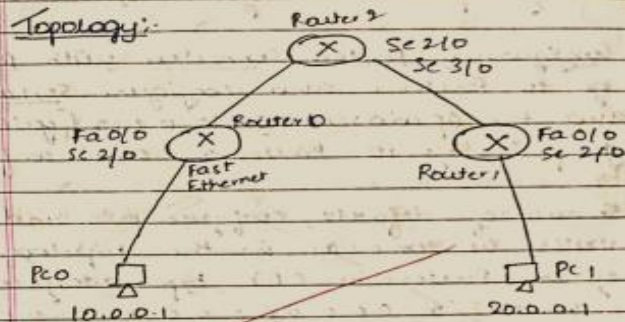 Topology:-
Router 2
Se 2/0
Se 3/0
Router 0
Fa 0/0
Se 2/0
Fast
Ethernet
Fa 0/0
Se 2/0
Router 1
PC0
10.0.0.1
PC 1
20.0.0.1